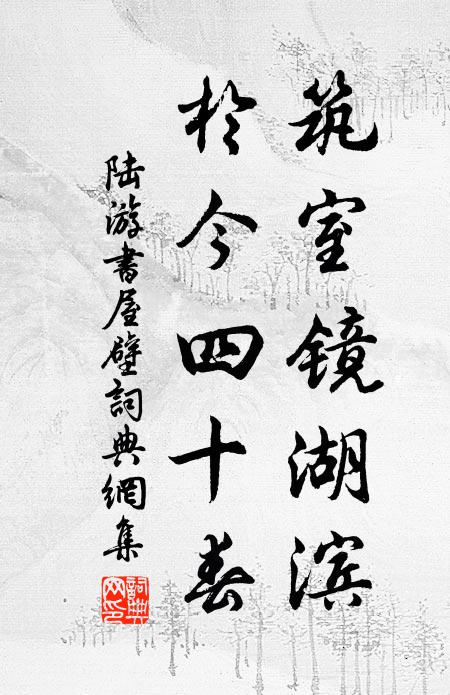 筑室镜湖滨
於今四十春
陆游书屋壁詞典網集